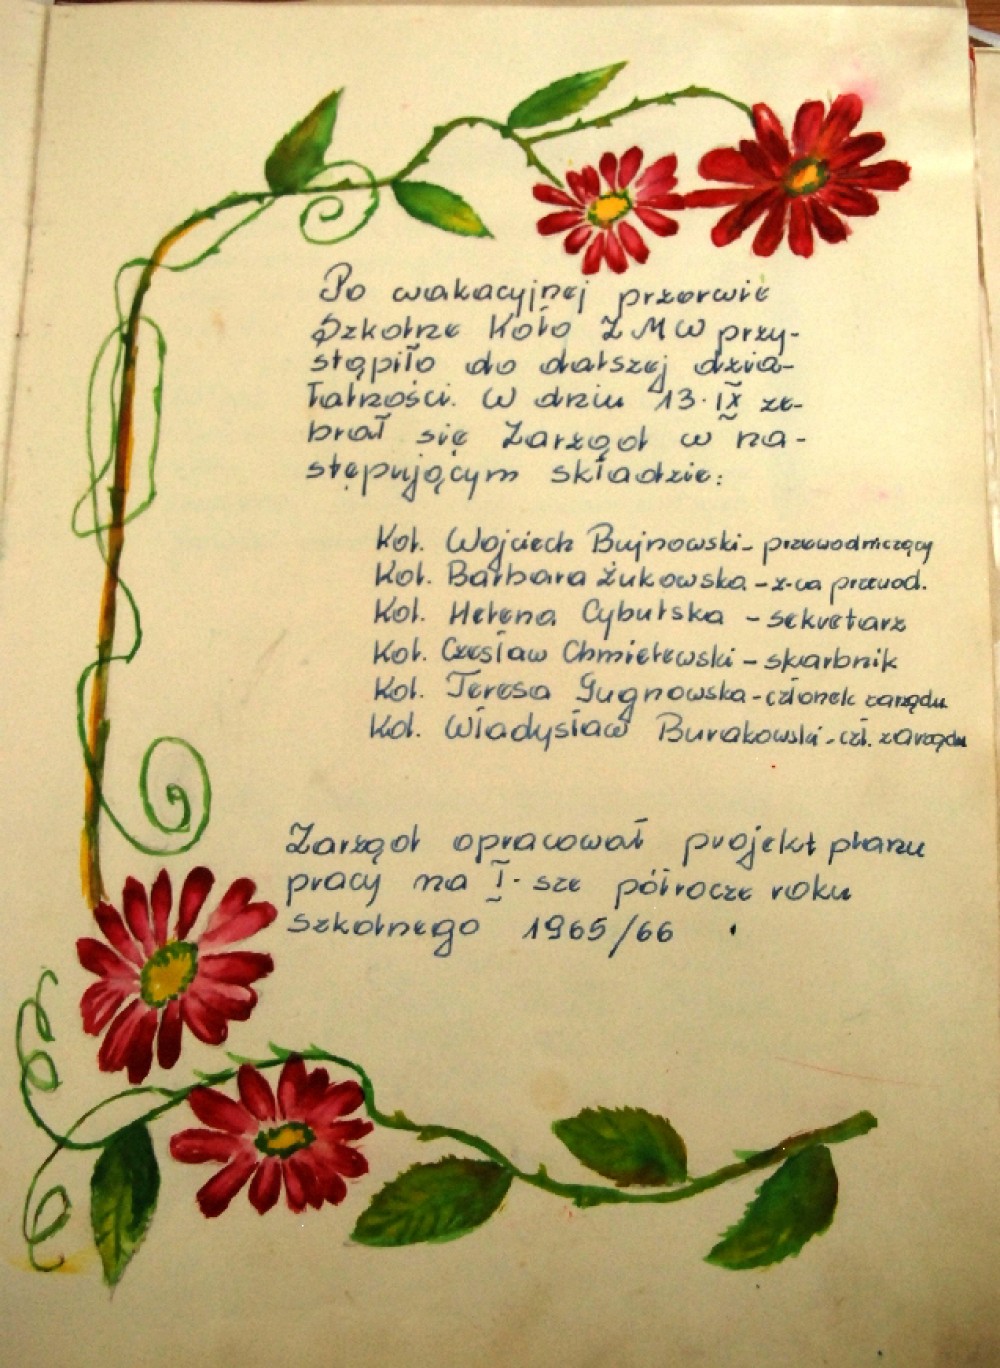 Po wakacyjnej przerwie
Szkolne Koło ZMW przy-
stąpiło do dalszej dzia-
łalności. W dniu 13.IX ze-
brał się Zarząd w na-
stępującym składzie:
Kol. Wojciech Bujnowski - przewodniczący
Kol. Barbara Żukowska - z-ca przewod.
Kol. Helena Cybulska - sekretarz
Kol. Czesław Chmielewski - skarbnik
Kol. Teresa Gugnowska - członek zarządu
Kol. Władysław Burakowski - czł. zarządu
Zarząd opracował projekt planu
pracy na I-sze półrocze roku
szkolnego 1965/66 .